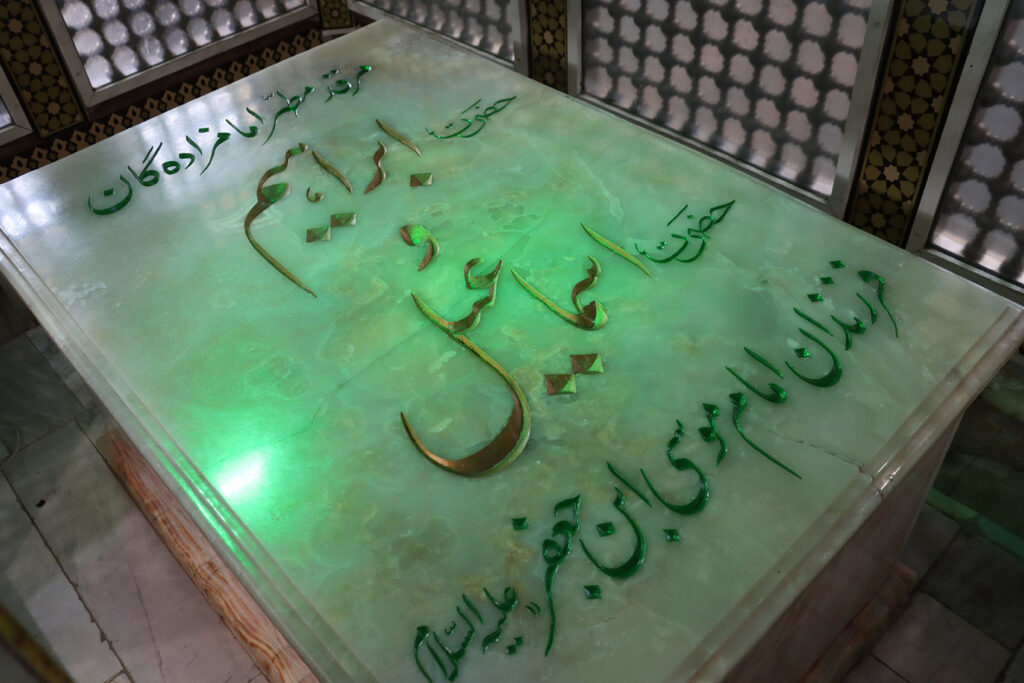 مرقد مطهر امامزاده گان
حضرت ابراهیم
و
حضرت اسماعیل
فرزندان امام موسی ابن جعفر علیه السلام